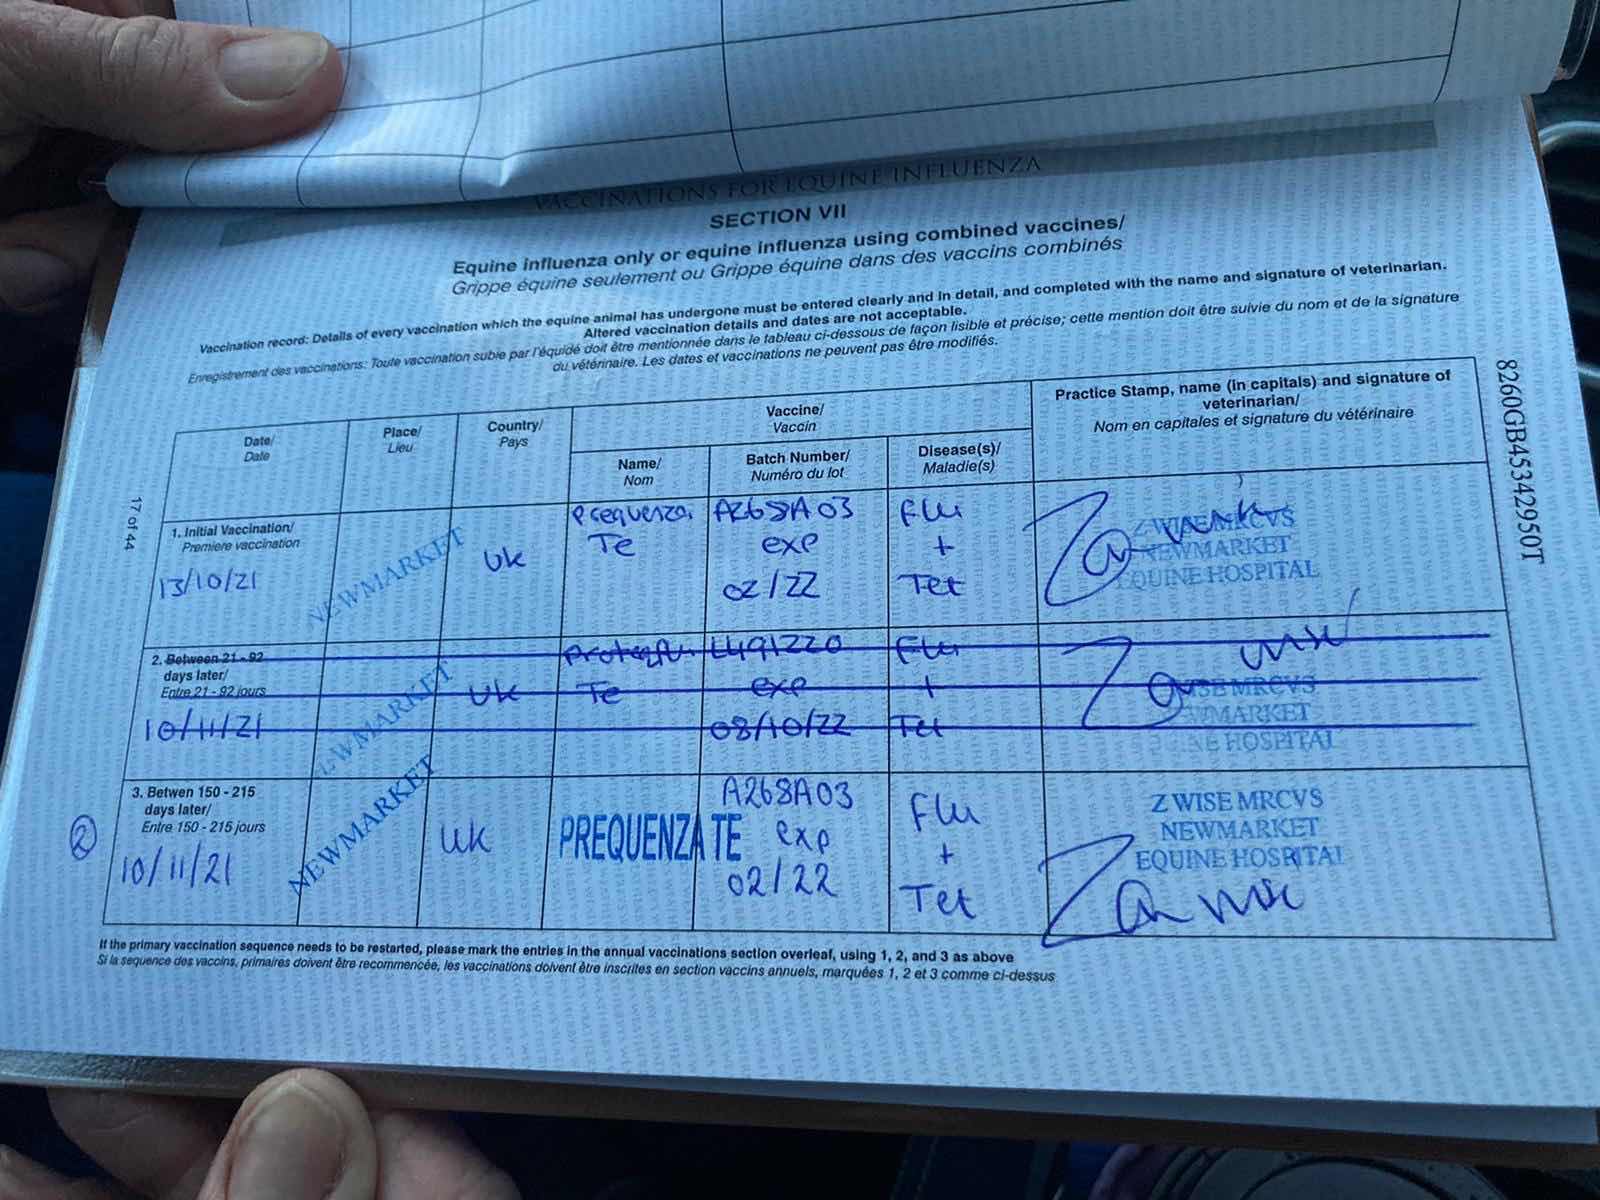 VACCINATIONS FOR EQUINE INFLUENZA
SECTION VII
Equine influenza only or equine influenza using combined vaccines/
Grippe équine seulement ou Grippe équine dans des vaccins combinés
Vaccination record: Details of every vaccination which the equine animal has undergone must be entered clearly and in detail, and completed with the name and signature of veterinarian.
Altered vaccination details and dates are not acceptable.
Enregistrement des vaccinations: Toute vaccination subie par l'équidé doit être mentionnée dans le tableau ci-dessous de façon lisible et précise; cette mention doit être suivie du nom et de la signature
du vétérinaire. Les dates et vaccinations ne peuvent pas être modifiés.
Date/
Date
Place/
Lieu
Country/
Pays
Vaccine/
Vaccin
Name/
Nom
Batch Number/
Numéro du lot
Disease(s)/
Maladie(s)
Practice Stamp, name (in capitals) and signature of
veterinarian/
Nom en capitales et signature du vétérinaire
1. Initial Vaccination/
Premiere vaccination
13/10/21
NEWMARKET
Uk
Prequenza
Te
A268A03
exp
02/22
Flu
+
Tet
Z WISE MRCVS
NEWMARKET
EQUINE HOSPITAL
2. Between 21 - 92
days later/
Entre 21 - 92 jours
10/11/21
NEWMARKET
Uk
Proteqflu
Te
L491220
exp
08/10/22
Flu
+
Tet
WISE MRCVS
WMARKET
INE HOSPITAL
3. Betwen 150 - 215
days later/
Entre 150 - 215 jours
2
10/11/21
NEWMARKET
Uk
PREQUENZA TE
A268A03
exp
02/22
Flu
+
Tet
Z WISE MRCVS
NEWMARKET
EQUINE HOSPITAL
If the primary vaccination sequence needs to be restarted, please mark the entries in the annual vaccinations section overleaf, using 1, 2, and 3 as above
Si la sequence des vaccins, primaires doivent être recommencée, les vaccinations doivent être inscrites en section vaccins annuels, marquées 1, 2 et 3 comme ci-dessus
17 of 44
8260GB45342950T